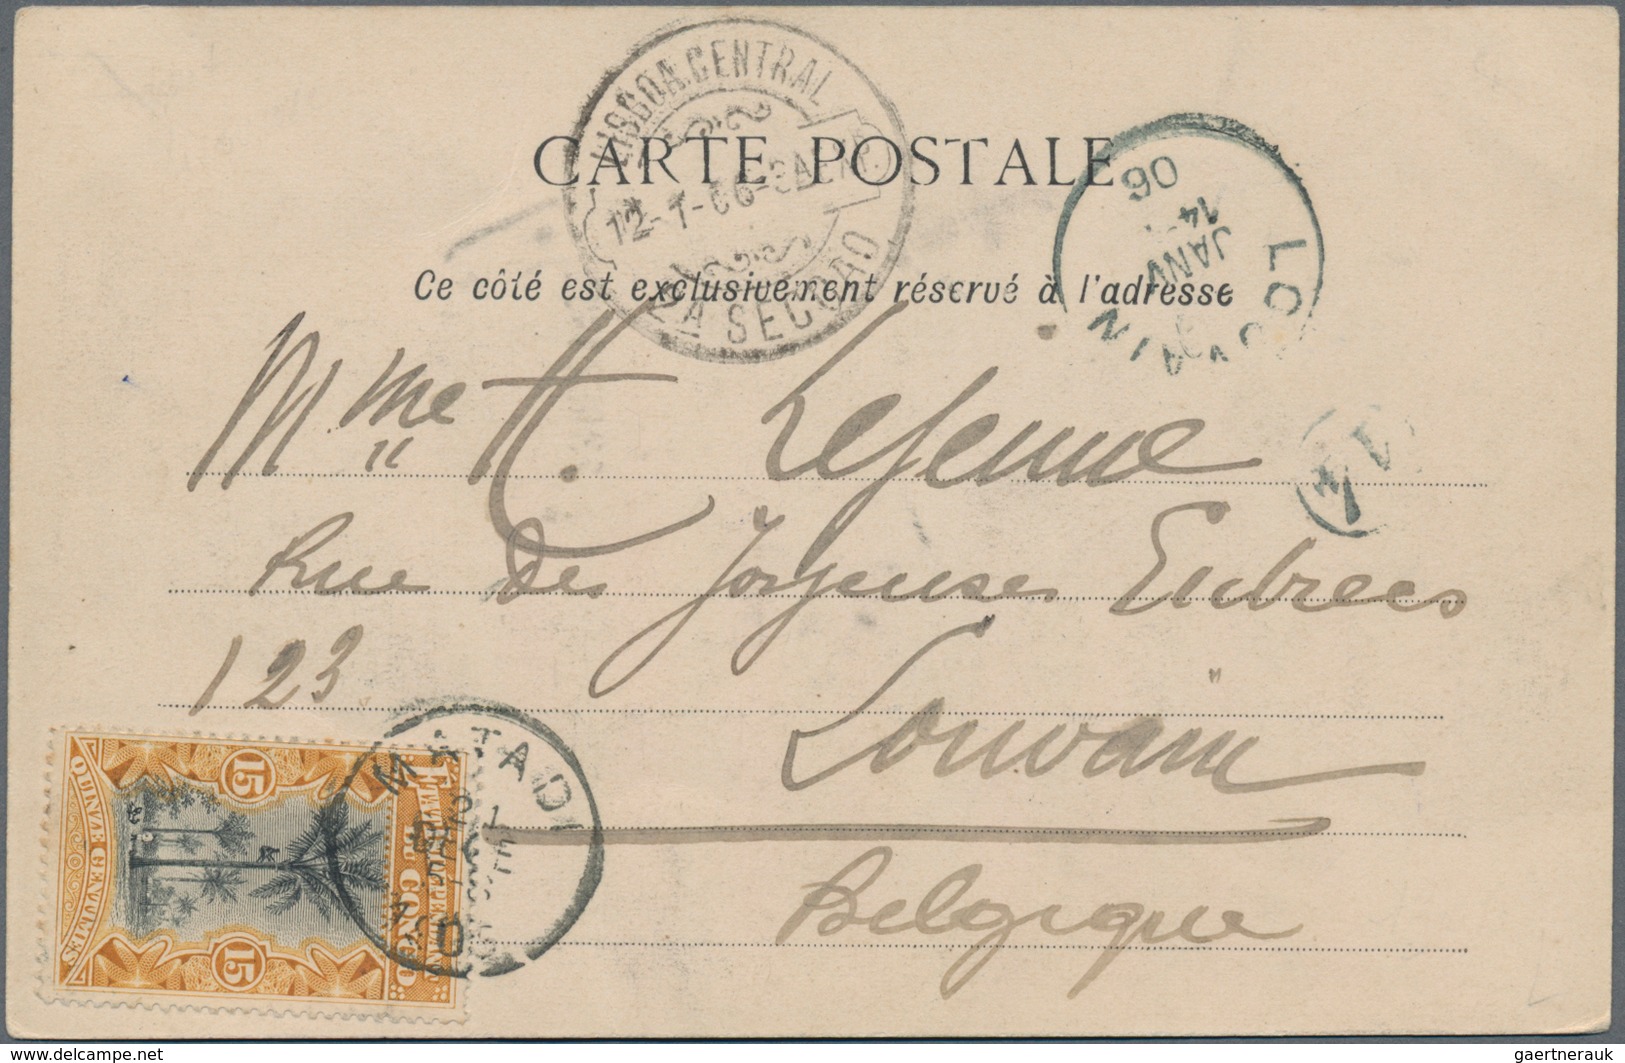 LISBOA.CENTRAL
12-1-06
CARTE POSTALE
Ce côté est exclusivement réservé à l'adresse
LOUVAIN
14
JANV
06
Mme H. Lejeune
14
Rue Des Joyeuses Entrees
123
Louvain
Belgique
MATADI
15
15
QUINZE CENTIMES
www.delcampe.net
gaertnerauk